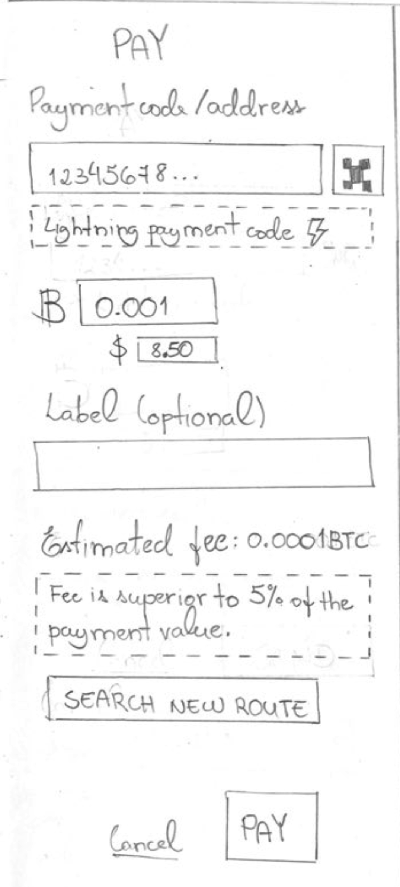 PAY
Payment code/address
12345678...
Lightning payment code
₿ 0.001
$ 8.50
Label (optional)
Estimated fee: 0.0001BTC
Fee is superior to 5% of the
payment value.
SEARCH NEW ROUTE
Cancel PAY